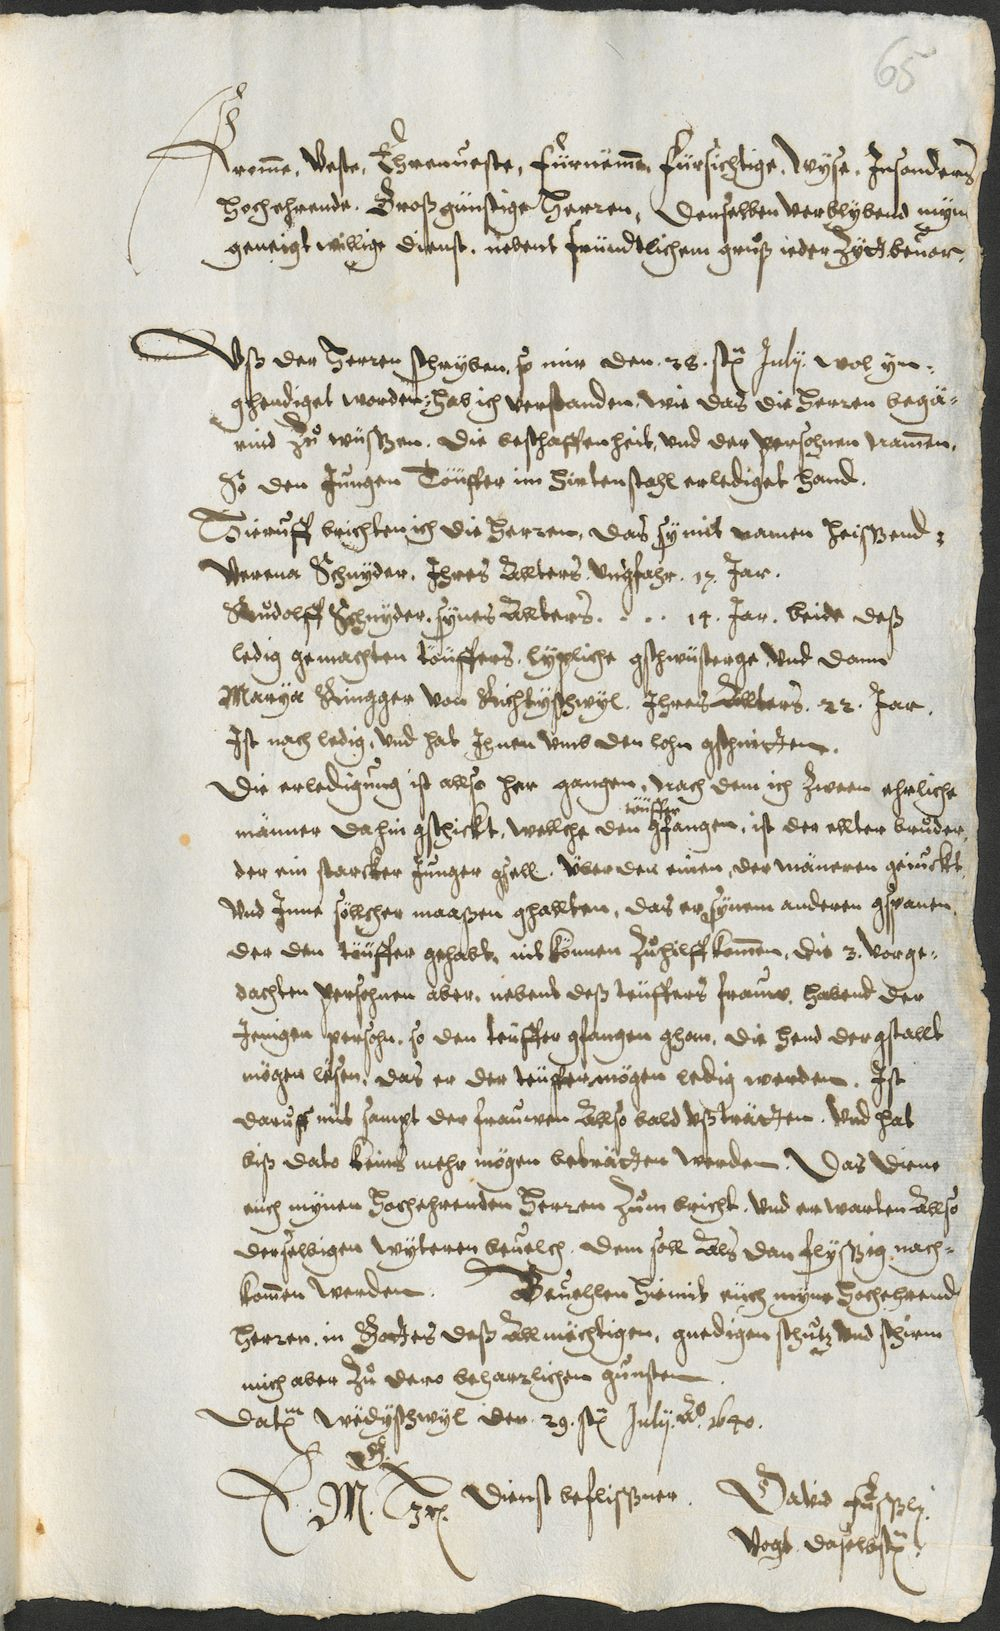 65
Fromme, Veste, Ehrenveste, fürnëme, fürsichtige, Wyse, Insonders
hochehrende. Großgünstige Herren, denselben verblybend myn
geneigt willige dienst, nebent fründtlichem gruß ieder Zÿtt bevor.
Uß der Herren schryben, so mir den 28. stẽ July. wol yn-
ghendiget worden: hab ich verstanden, wie das die Herren begä-
rind Zů wüßen. die beschaffenheit, und der persohnen namen,
So den Jungen Töüffer im Hirtenstahl erlediget hand.
Hieruff brichten ich die Herren, das sy mit namen heißend:
Verena Schnyder. Ihres Allters Ungfahr. 17. Jar.
Růdolff Schnyder, synes Allters. . . . 14. Jar. beide deß
ledig gemachten töüffers, lypliche gschwüsterge, und dann
Marya Ringger von Richtischwyl. Ihres Allters. 22. Jar.
Ist noch ledig, und hat Ihnen umb den lohn gschnitten.
Die erledigung ist allso her gangen, nach dem ich Zween ehrliche
männer dahin gschickt, wellche den gfangen, ist der ellter brůder,
töüffer
der ein starcker Junger gsell. über den einen, der mäneren geruckt,
und Inne söllcher maaßen ghallten, das er synem anderen gspanen
der den töüffer gehabt, nit können Zůhilff komen, die 3. vorge-
dachten persohnen aber, nebent deß teüffers frauw, habend der
Jenigen persohn, so den teüffer gfangen ghan, die hend dergstallt
mögen lösen, das er der teüffer mögen ledig werden. Ist
daruf mit sampt der frauwen Allso bald ußträtten. und hat
biß dato keins mehr mögen beträtten werden. Das diene
euch mynen hochehrenden Herren Zum bricht. und erwarten Allso
derselbigen wyteren bevelch. dem soll Als dan flyßig nach-
komen werden. Bevehlen hiemit eüch myne hochehrend
Herren, in Gottes deß Allmächtigen, gnedigen schutz und schirm
mich aber Zů dero beharrlichen gunsten.
Datũ Wëdyschwyl den 29. stẽ July. Aº. 1640.
E. M. G. Hrr. Dienst beflißner. David Füßly.
Vogt daselbst.